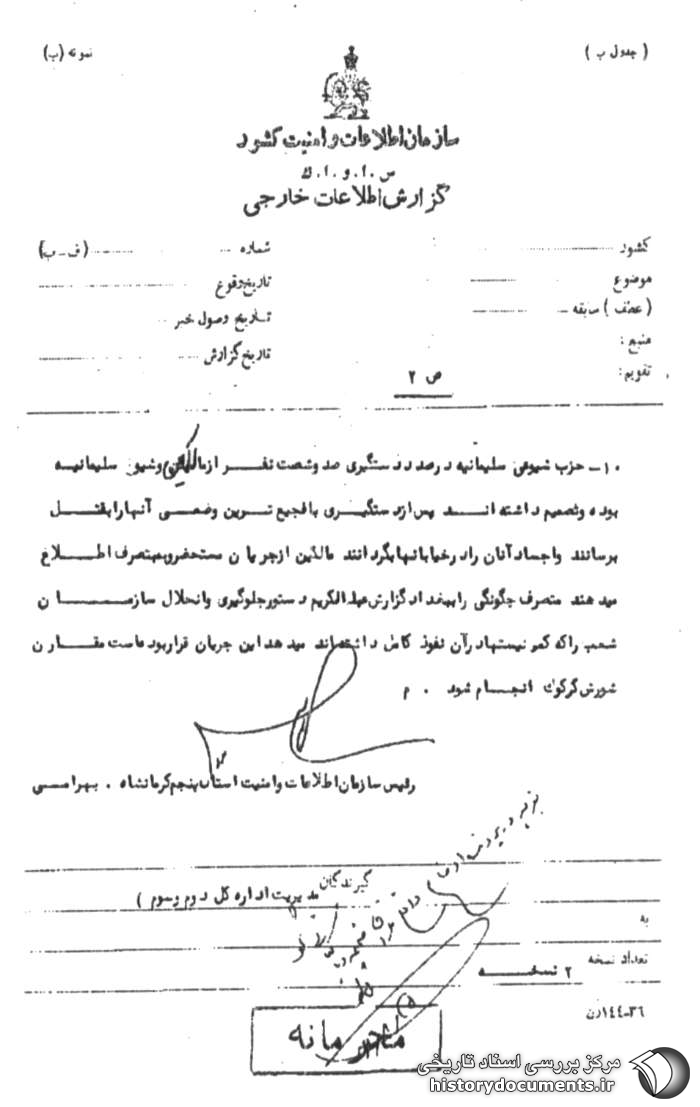 ( جدول ب )
نمونه (ب)
سازمان اطلاعات و امنیت کشور
س . ا . و . ا . ك
گزارش اطلاعات خارجی
کشور
شماره (ف-ب)
موضوع
تاریخ وقوع
( عطف ) سابقه
تاریخ وصول خبر
منبع :
تاریخ گزارش
تقویم :
ص ۲
۱۰- حزب شیوعی سلیمانیه درصدد دستگیری صد و شصت نفر از مالکین وشیوخ سلیمانیه
بوده وتصمیم داشته اند پس ازدستگیری بافجیع ترین وضعی آنهارابقتل
برسانند واجساد آنان رادرخیابانهابگردانند مالکین ازجریان مستحضروبمتصرف اطلاع
میدهند متصرف چگونگی راببغداد گزارش عبدالکریم دستورجلوگیری وانحلال سازمان
شعب راکه کمونیستهادرآن نفوذ کامل داشته اند میدهد این جریان قراربوده است مقارن
شورش کرکوك انجام شود . م
رئیس سازمان اطلاعات وامنیت استان پنجم کرمانشاه . بهرامی
گیرندگان
مدیریت اداره کل دوم وسوم )
به
تعداد نسخه
۲ نسخه
۳۶-۱۴۴ن
محرمانه
مرکز بررسی اسناد تاریخی
historydocuments.ir